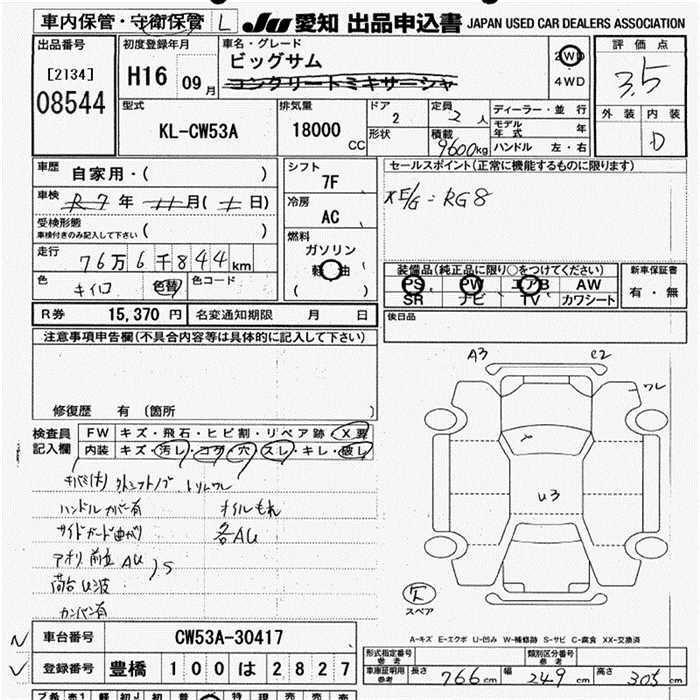 車内保管・守衛保管 L
JU 愛知 出品申込書 JAPAN USED CAR DEALERS ASSOCIATION
出品番号
[2134]
08544
初度登録年月
H16 09月
車名・グレード
ビッグサム
コンクリートミキサーシャ
2WD
4WD
評価点
3.5
外装 内装
D
型式
KL-CW53A
排気量
18000 CC
ドア
2
形状
定員
2人
積載
9600kg
ディーラー・並行
モデル年式 年
ハンドル 左・右
車歴 自家用・( )
車検 R7年 11月( 日)
受検形態
車検付きのみ記入して下さい ( )
走行 76万6千844km
色 キイロ 色替 色コード
シフト
7F
冷房
AC
燃料
ガソリン
軽油
( )
セールスポイント(正常に機能するものに限ります)
E/G : RG8
装備品(純正品に限り○をつけてください)
PS PW エアB AW
SR ナビ TV カワシート
新車保証書
有・無
R券 15,370円 名変通知期限 月 日
後日品
注意事項申告欄(不具合内容等は具体的に記入して下さい)
修復歴 有(箇所 )
検査員記入欄
FW キズ・飛石・ヒビ割・リペア跡・X要
内装 キズ・汚レ・コゲ・穴・スレ・キレ・破レ
ハンドルカバー有 オイルもれ
サイドガード曲がり 各AU
アオリ 前立 AU S
荷台U波
カンバン有
A3 C2
ワレ
U3
スペア
A-キズ E-エクボ U-凹み W-補修跡 S-サビ C-腐食 XX-交換済
車台番号 CW53A-30417
登録番号 豊橋 100 は 2827
形式指定番号
参考
類別区分番号
参考
車庫証明用
参考
長さ 766cm 幅 249cm 高さ 305cm